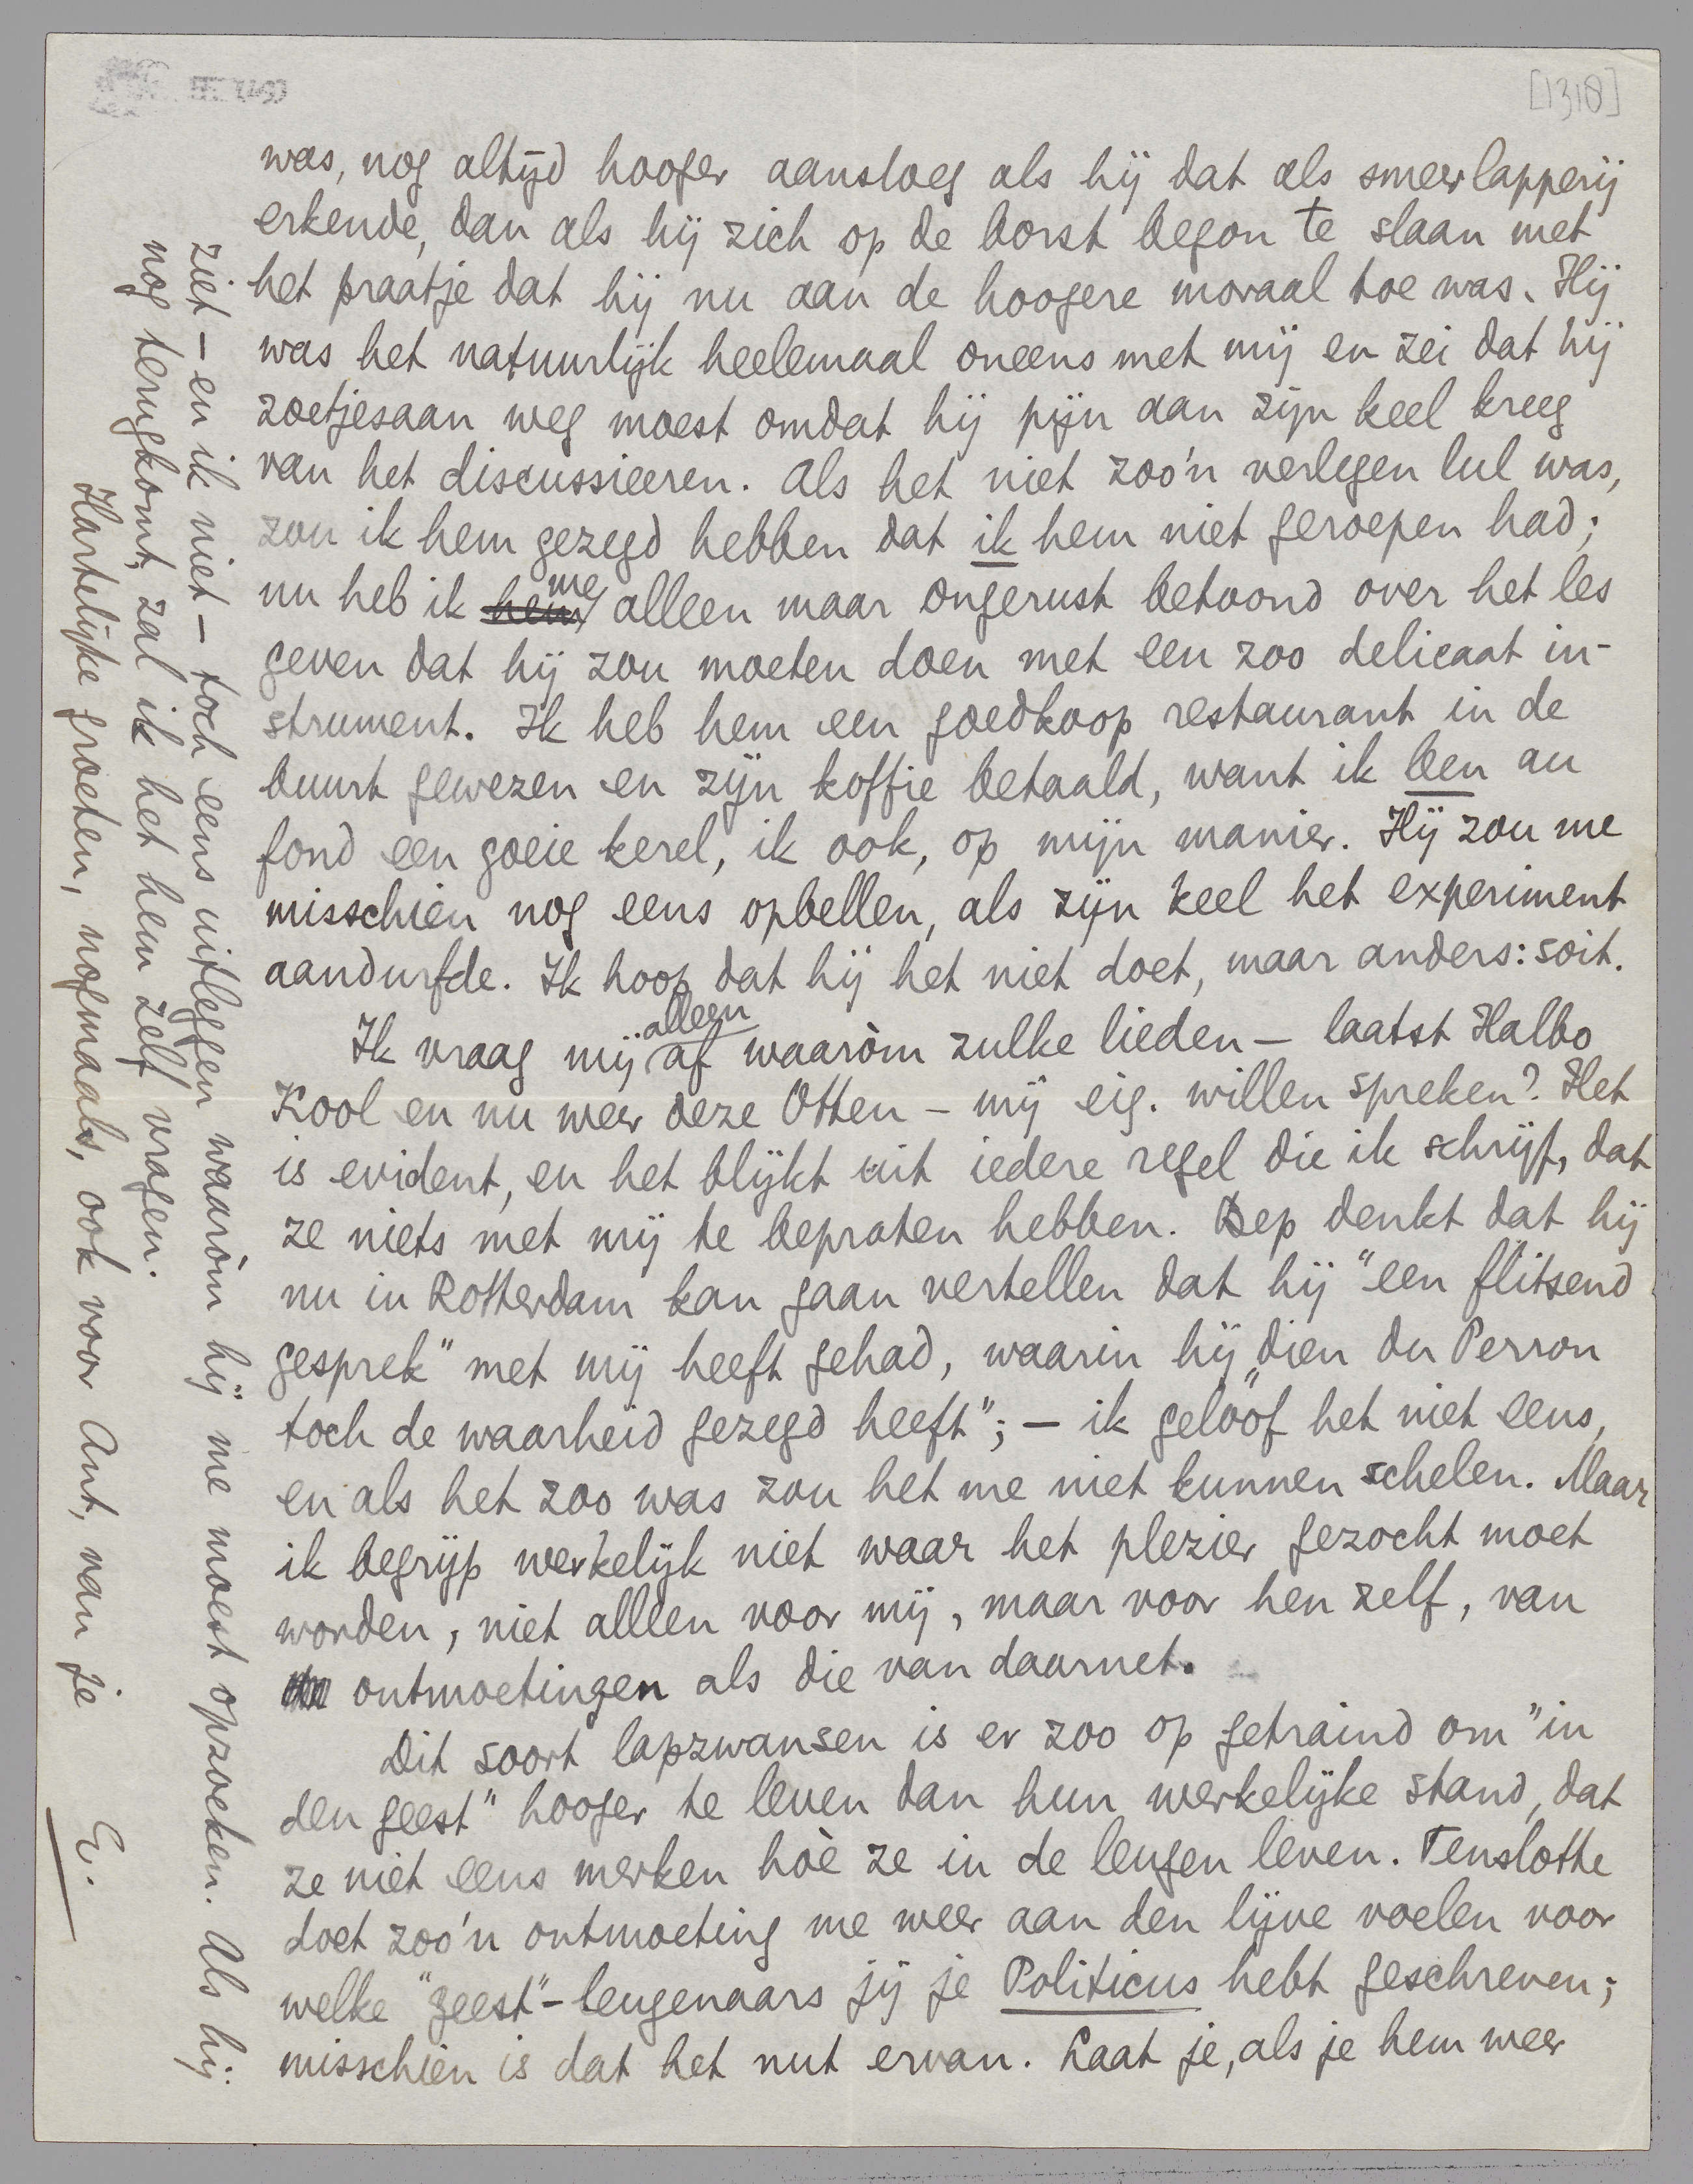 [1318]
was, nog altijd hooger aansloeg als hij dat als smeerlapperij
erkende, dan als hij zich op de borst begon te slaan met
het praatje dat hij nu aan de hoogere moraal toe was. Hij
was het natuurlijk heelemaal oneens met mij en zei dat hij
zoetjesaan weg moest omdat hij pijn aan zijn keel kreeg
van het discussieeren. Als het niet zoo'n verlegen lul was,
zou ik hem gezegd hebben dat ik hem niet geroepen had;
nu heb ik hem me alleen maar ongerust betoond over het les
geven dat hij zou moeten doen met een zoo delicaat in-
strument. Ik heb hem een goedkoop restaurant in de
buurt gewezen en zijn koffie betaald, want ik ben au
fond een goeie kerel, ik ook, op mijn manier. Hij zou me
misschien nog eens opbellen, als zijn keel het experiment
aandurfde. Ik hoop dat hij het niet doet, maar anders: soit.
Ik vraag mij alleen af waaròm zulke lieden — laatst Halbo
Kool en nu weer deze Otten — mij eig. willen spreken? Het
is evident, en het blijkt uit iedere regel die ik schrijf, dat
ze niets met mij te bepraten hebben. Bep denkt dat hij
nu in Rotterdam kan gaan vertellen dat hij "een flitsend
gesprek" met mij heeft gehad, waarin hij "dien du Perron
toch de waarheid gezegd heeft"; — ik geloof het niet eens,
en als het zoo was zou het me niet kunnen schelen. Maar
ik begrijp werkelijk niet waar het plezier gezocht moet
worden, niet alleen voor mij, maar voor hen zelf, van
ontmoetingen als die van daarnet.
Dit soort lapzwansen is er zoo op getraind om "in
den geest" hooger te leven dan hun werkelijke stand, dat
ze niet eens merken hoè ze in de leugen leven. Tenslotte
doet zoo'n ontmoeting me weer aan den lijve voelen voor
welke "geest"-leugenaars jij je Politicus hebt geschreven;
misschien is dat het nut ervan. Laat je, als je hem weer
ziet — en ik niet — toch eens uitleggen waaròm hij me moest opzoeken. Als hij
nog terugkomt, zal ik het hem zelf vragen.
Hartelijke groeten, nogmaals, ook voor Ant, van je
E.